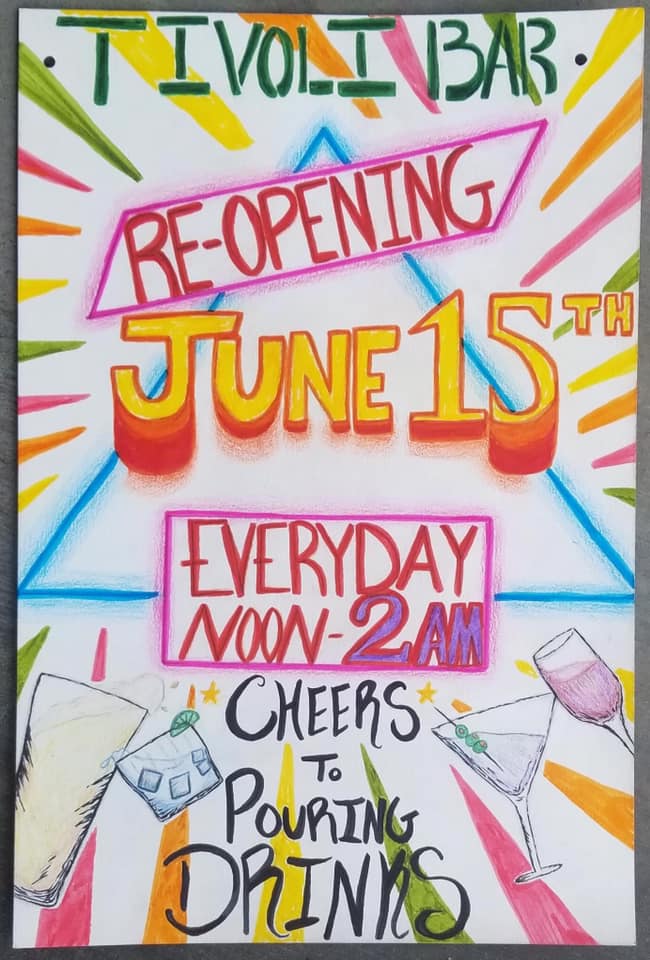 TIVOLI BAR
RE-OPENING
JUNE 15TH
EVERYDAY
NOON-2AM
CHEERS
TO
POURING
DRINKS